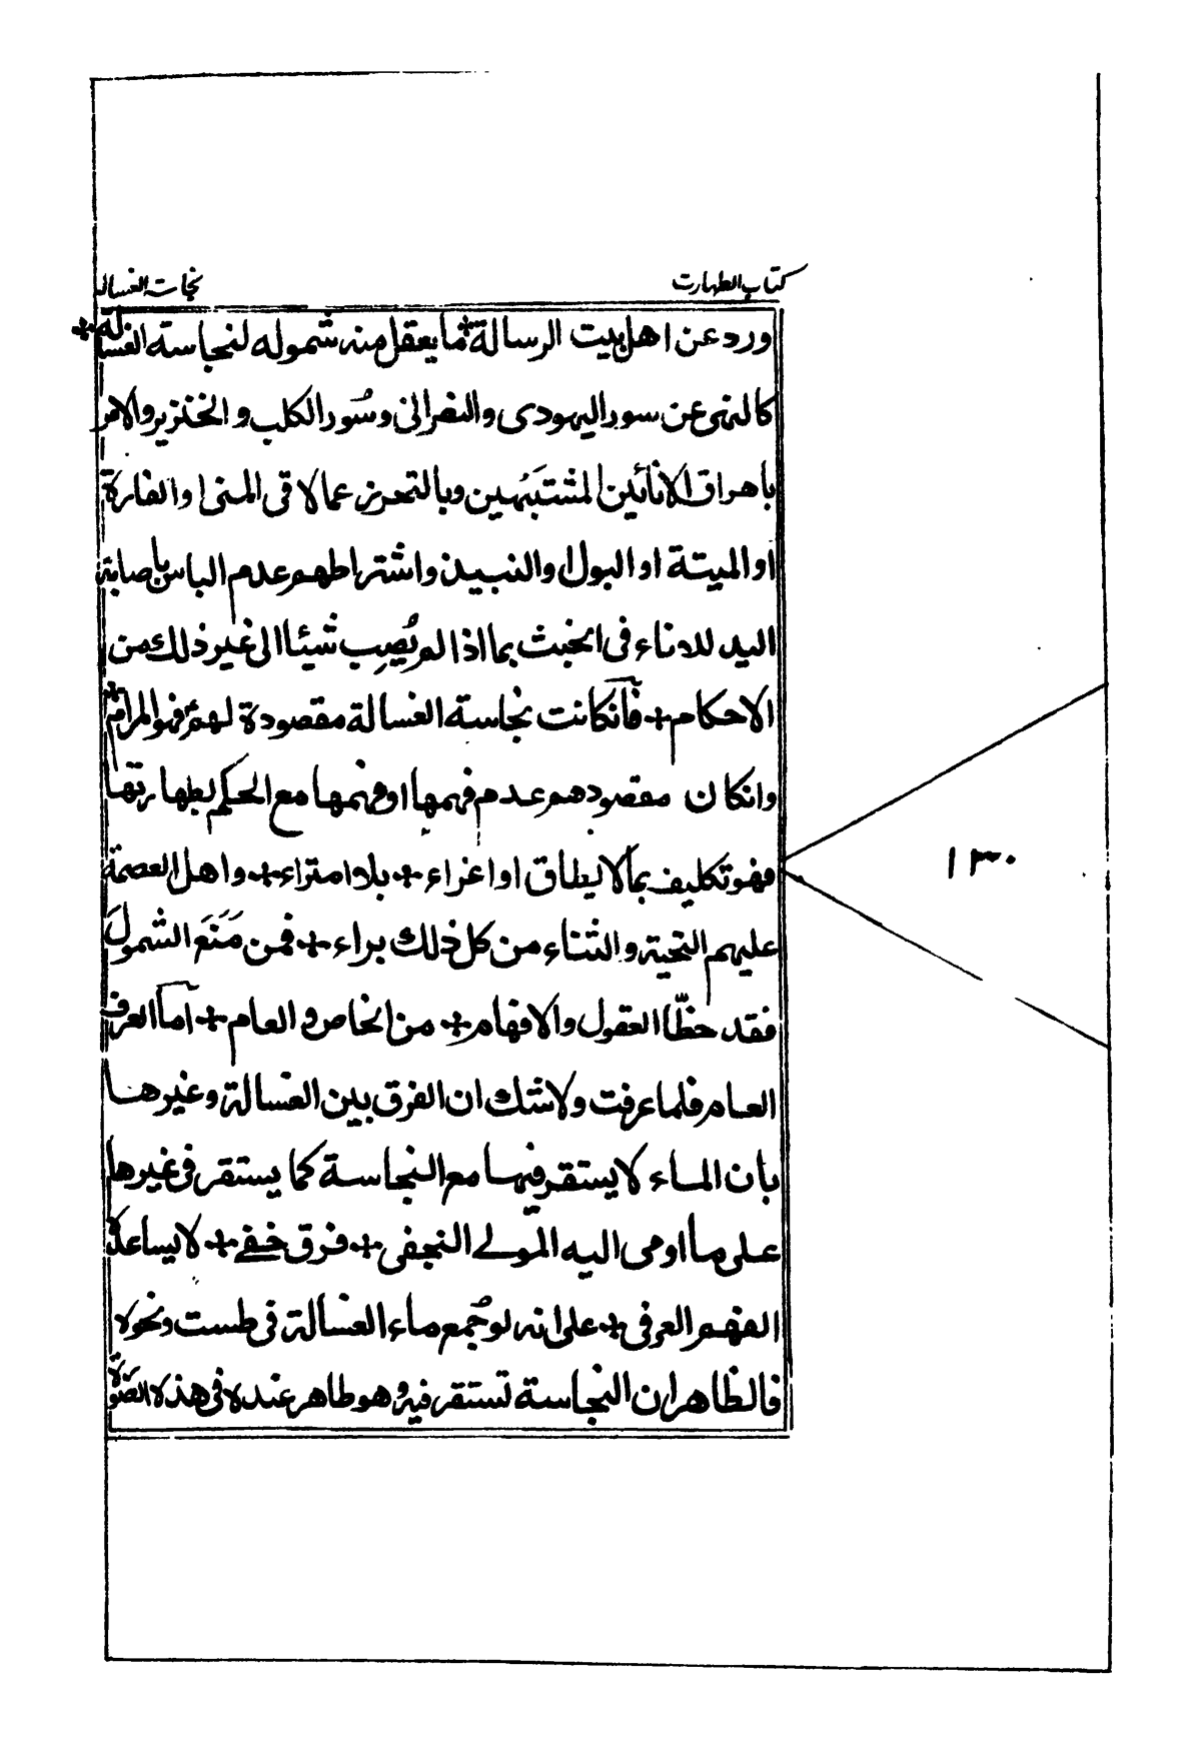 كتاب الطهارت
نجاست الغساله
ورد عن اهل بيت الرسالة + ما يعقل منه شموله لنجاسة الغسالة +
كالنهى عن سور اليهودى والنصرانى وسُور الكلب و الخنزير والامر
باهراق الانائين المشتبَهين وبالتحرز عما لاقى المنى او الفارة
او الميتة او البول او النبيذ و اشتراطهم عدم الباس باصابة
اليد للاناء فى الخبث بما اذا لم يُصِب شيئا الى غير ذلك من
الاحكام + فان كانت نجاسة الغسالة مقصودة لهم فهو المرام +
وانكان مقصودهم عدم فهمها او فهمها مع الحكم بطهارتها
فهو تكليف بما لا يطاق او اغراء + بلا امتراء + واهل العصمة
عليهم التحية والثناء من كل ذلك براء + فمن مَنَعَ الشمولَ
فقد حظّا العقول والافهام + من الخاص و العام + اما العرف
العام فلما عرفت ولا شك ان الفرق بين الغسالة وغيرها
بان الماء لا يستقر فيها مع النجاسة كما يستقر فى غيرها
على ما اومى اليه المولے النجفى + فرق خفے + لا يساعده
الفهم العرفى + على انه لو جُمع ماء الغسالة فى طست ونحوه
فالظاهر ان النجاسة تستقر فيه وهو طاهر عنده فى هذه الصورة
١٣٠